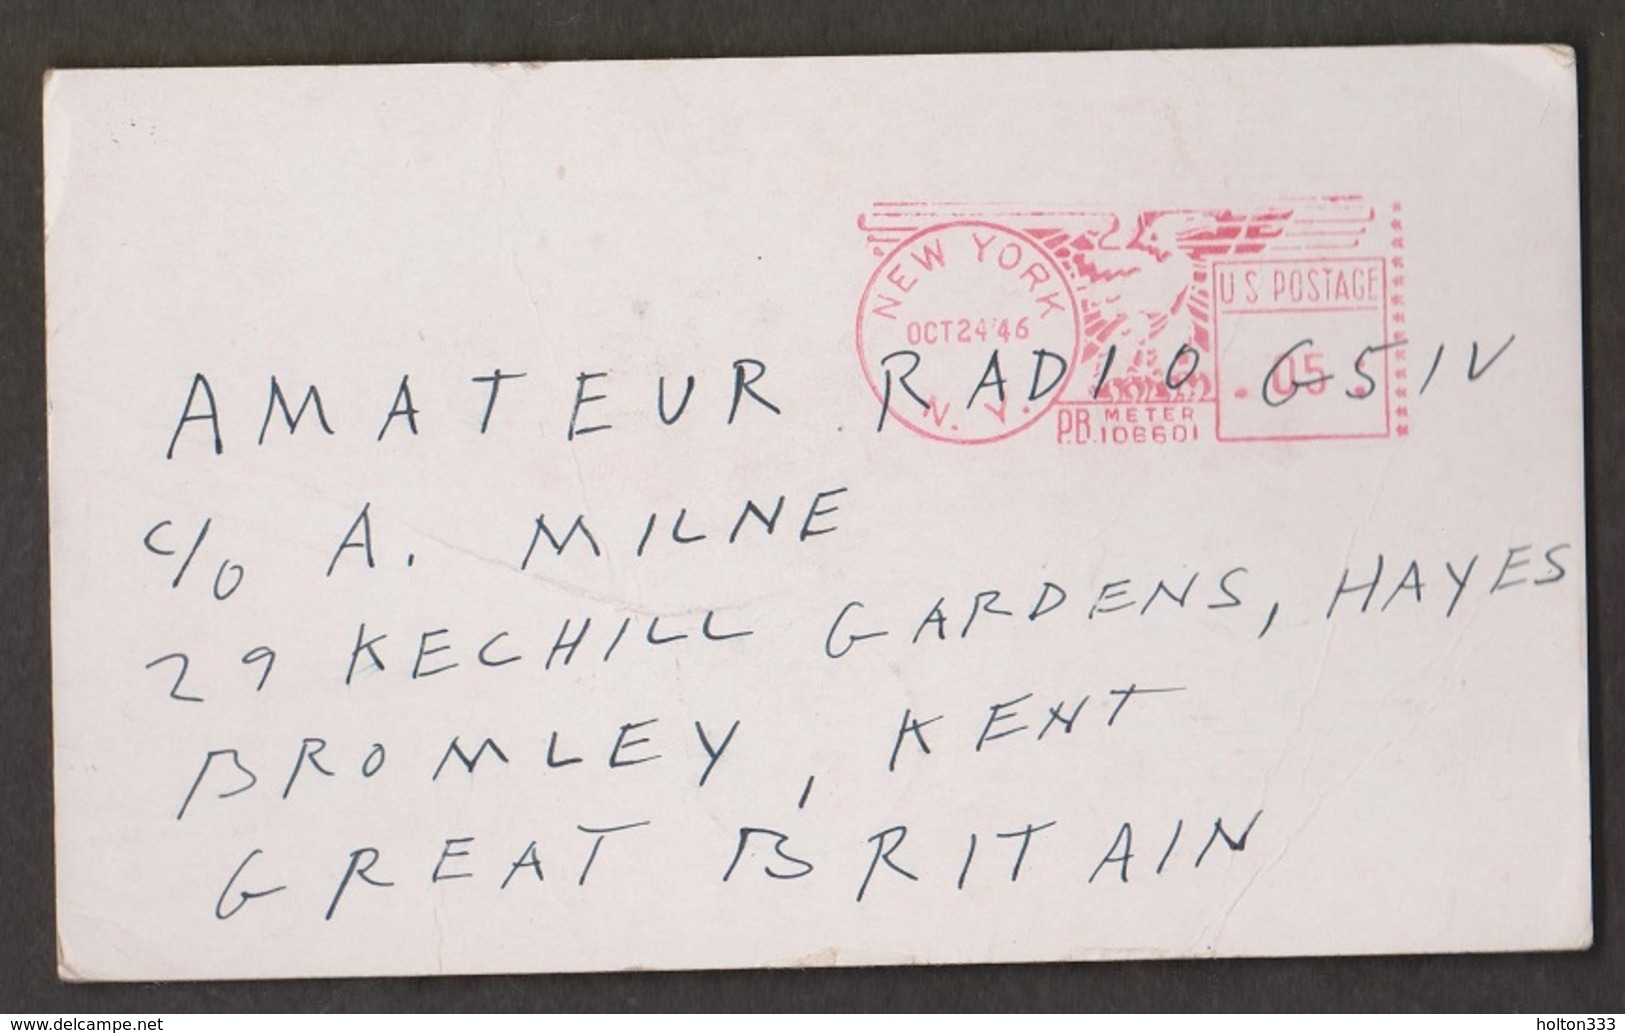 NEW YORK
OCT 24 '46
N. Y.
U S POSTAGE
.05
P.B. METER
P.B. 106601
AMATEUR RADIO G5IV
c/o A. MILNE
29 KECHILL GARDENS, HAYES
BROMLEY, KENT
GREAT BRITAIN
www.delcampe.net
holton333